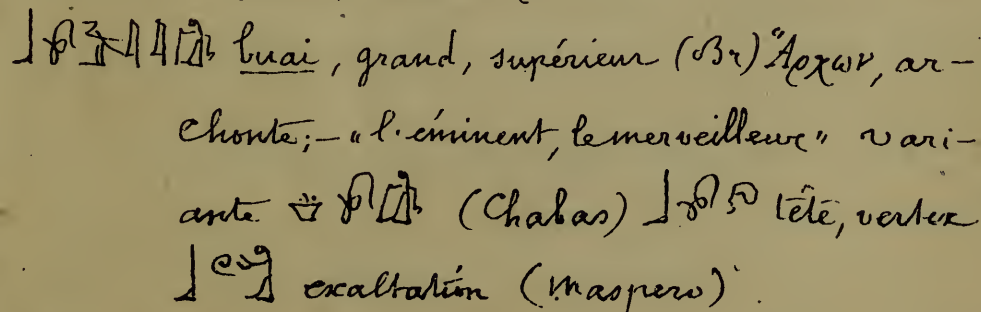 buai, grand, supérieur (Br) Ἄρχων, ar-
chonte; – "l'éminent, le merveilleux" vari-
ante (Chabas) tête, vertex
exaltation (Maspero).